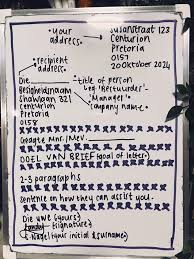 Your address.
Susanstraat 123
Centurion
Pretoria
0157
20 Oktober 2024
recipient address.
Die
title of person
(eg. "Bestuurder"
"Manager"
Company name
Besigheidnaam
Shawlaan 321
Centurion
Pretoria
0158
Geagte Mnr./Mev.
DOEL VAN BRIEF (goal of letter)
2-3 paragraphs
Sentence on how they can assist you.
Die uwe (yours)
(signature)
(your initial & surname)